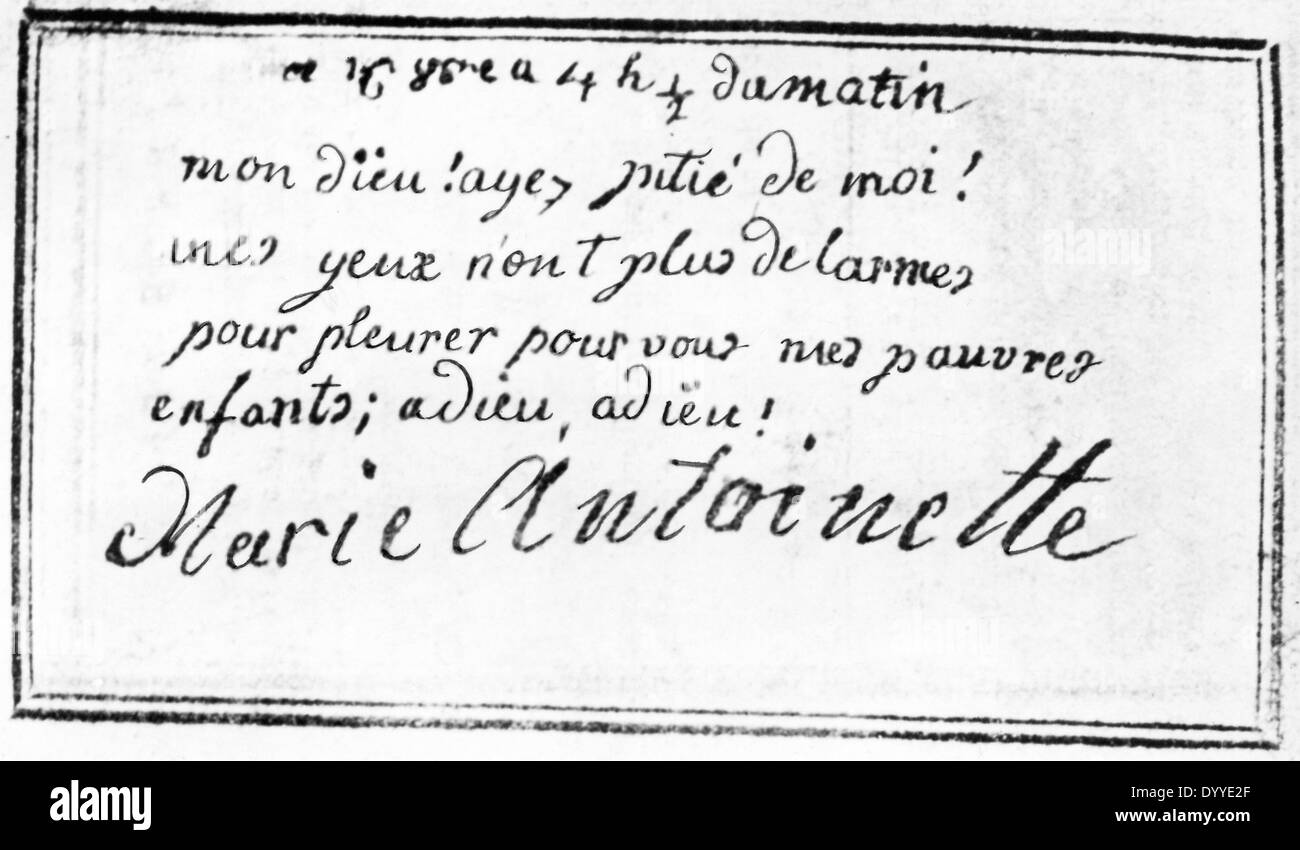 ce 16 8bre a 4 h ½ du matin
mon dieu ! ayez pitié de moi !
mes yeux n'ont plus de larmes
pour pleurer pour vous mes pauvres
enfants; adieu, adieu !
Marie Antoinette
alamy
alamy
a
alamy
Image ID: DYYE2F
www.alamy.com